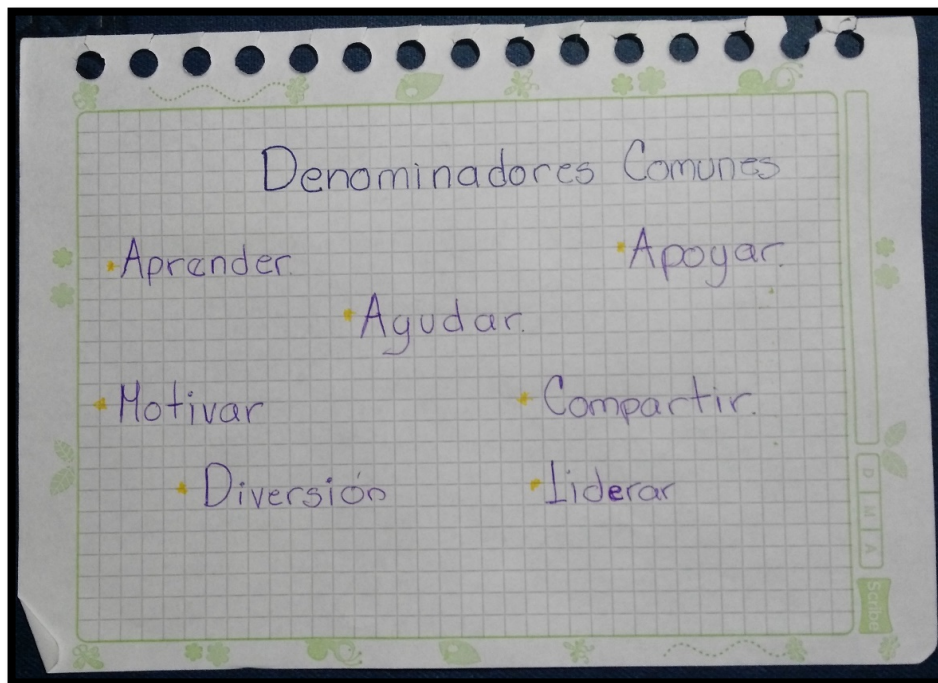 Denominadores Comunes
•Aprender.
•Apoyar.
•Ayudar.
•Motivar
•Compartir.
•Diversión
•Liderar
D M A
Scribe